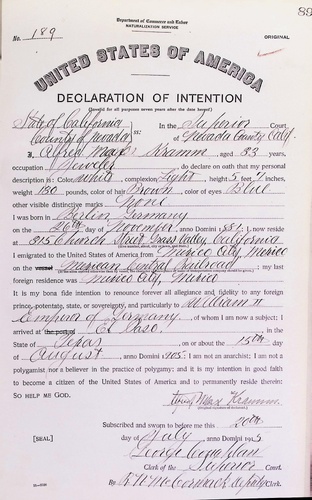 89
Department of Commerce and Labor
NATURALIZATION SERVICE
No. 189
ORIGINAL
UNITED STATES OF AMERICA
DECLARATION OF INTENTION
(Invalid for all purposes seven years after the date hereof)
State of California
County of Nevada ss:
In the Superior Court
of Nevada County, Calif.
I, Alfred Max Kramm, aged 33 years,
occupation Jeweler, do declare on oath that my personal
description is: Color White, complexion Light, height 5 feet 7 inches,
weight 130 pounds, color of hair Brown, color of eyes Blue
other visible distinctive marks None
I was born in Berlin, Germany
on the 26th day of November, anno Domini 1881; I now reside
at 315 Church Street, Grass Valley, California
I emigrated to the United States of America from Mexico City, Mexico
on the Mexican Central Railroad; my last
foreign residence was Mexico City, Mexico
It is my bona fide intention to renounce forever all allegiance and fidelity to any foreign
prince, potentate, state, or sovereignty, and particularly to William II
Emperor of Germany, of whom I am now a subject; I
arrived at the El Paso,
in the
State of Texas on or about the 15th day
of August, anno Domini 1905; I am not an anarchist; I am not a
polygamist nor a believer in the practice of polygamy; and it is my intention in good faith
to become a citizen of the United States of America and to permanently reside therein:
SO HELP ME GOD.
Max Kramm
Subscribed and sworn to before me this 20th
[SEAL] day of July, anno Domini 1915
George
Clerk of the Superior Court.
By R. N. McCormack Deputy Clerk.